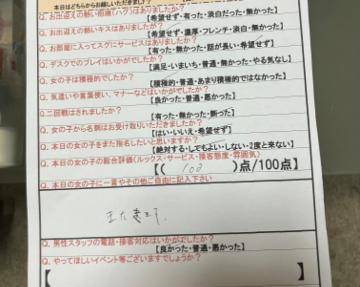 本日はどちらからお越しいただきました？
Q. お出迎えの熱い抱擁(ハグ)はありましたか？
【希望せず・有った・淡白だった・無かった】
Q. お出迎えの熱いキスはありましたか？
【希望せず・濃厚・フレンチ・淡白・無かった】
Q. お部屋に入ってスグにサービスはありましたか？
【有った・無かった・話が長い・希望せず】
Q. デスクでのプレイはいかがでしたか？
【満足・いまいち・普通・無かった・やる気なし】
Q. 女の子は積極的でしたか？
【積極的・普通・あまり積極的ではなかった】
Q. 気遣いや言葉使い、マナーなどはいかがでしたか？
【良かった・普通・悪かった】
Q. 二回戦はされましたか？
【有った・無かった・断った】
Q. 女の子から名刺はお受け取りいただきましたか？
【はい・いいえ・希望せず】
Q. 本日の女の子をまた指名したいと思いますか？
【絶対する・してもよい・しない・2度と来ない】
Q. 本日の女の子の総合評価(ルックス・サービス・接客態度・雰囲気)
【( 100 )点/100点】
Q. 本日の女の子に一言やその他ご自由に記入下さい
また来ます。
Q. 男性スタッフの電話・接客対応はいかがでしたか？
【良かった・普通・悪かった】
Q. やってほしいイベント等ございますでしょうか？